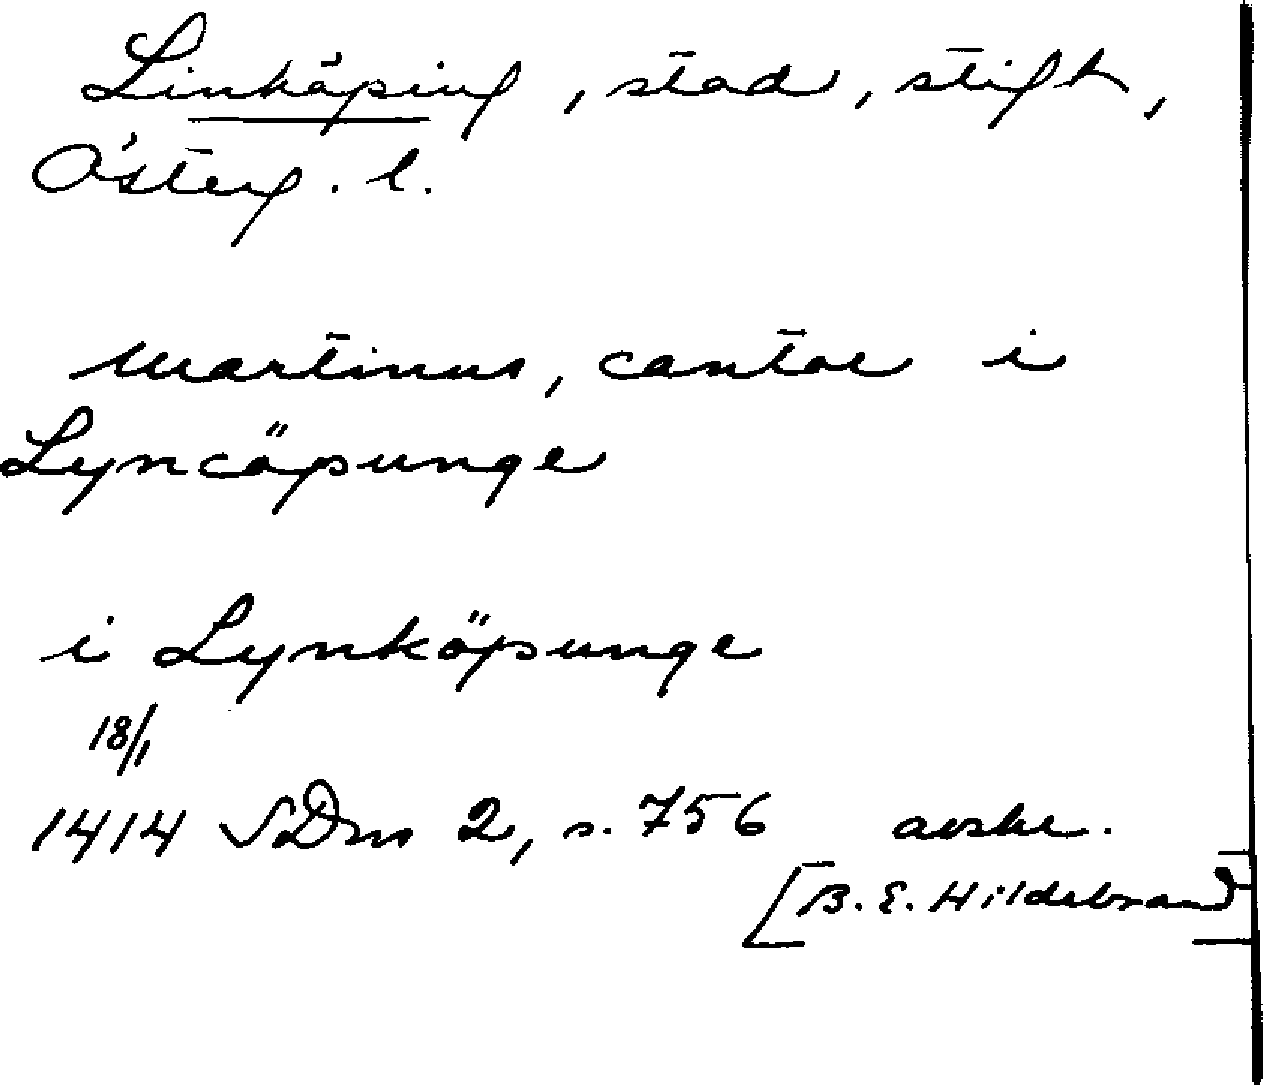 Linköping, stad, stift,
Österg. l.
martinus, cantor i
Lyncöpunge
i Lynköpunge
18/1
1414 SDns 2, s. 756 avskr.
[B. E. Hildebrand]